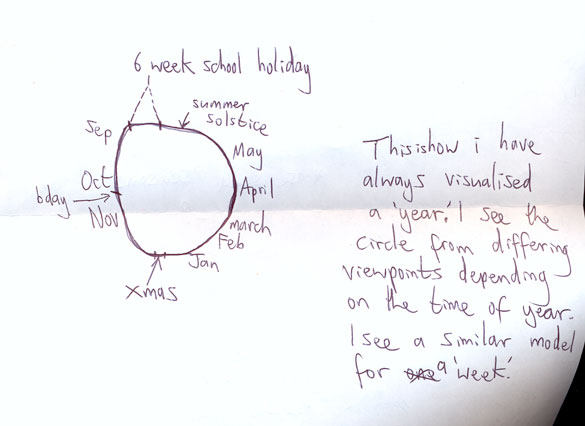 6 week school holiday
summer
solstice
Sep
May
Oct
April
bday
Nov
march
Feb
Jan
Xmas
This is how i have
always visualised
a 'year'. I see the
circle from differing
viewpoints depending
on the time of year.
I see a similar model
for a 'week'.